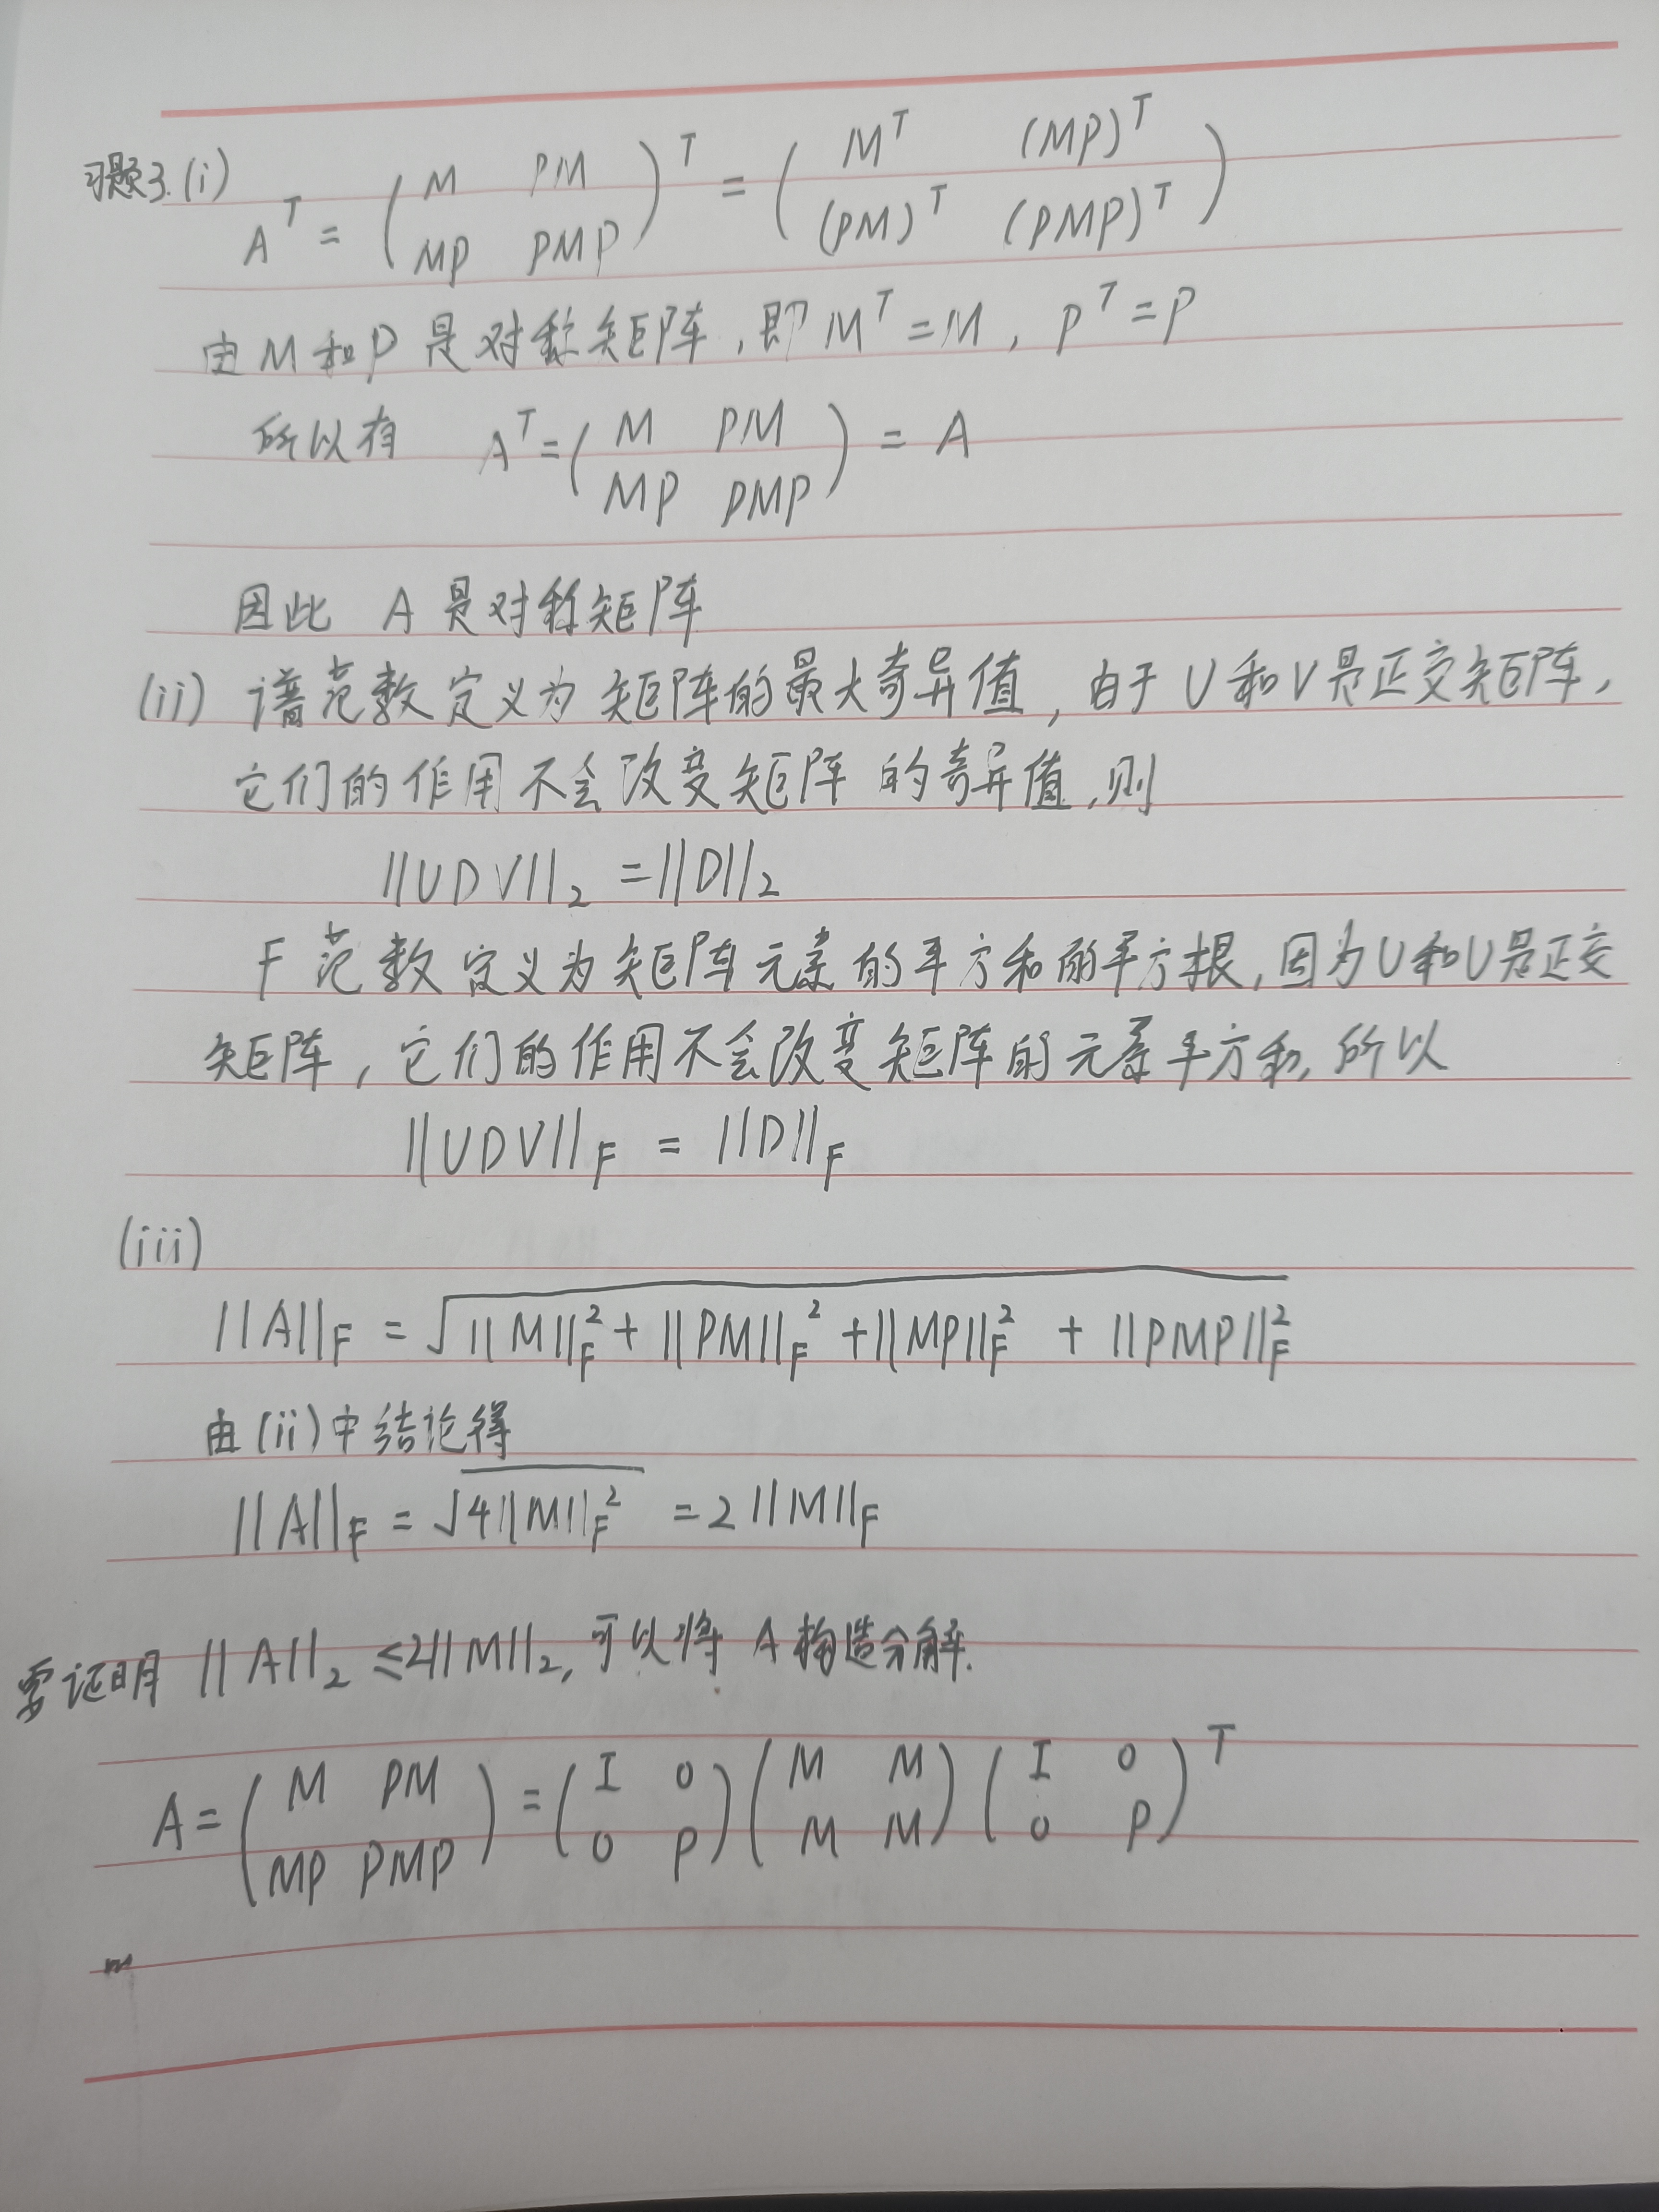 习题3.(i)
A^T = ( M PM ; MP PMP )^T = ( M^T (MP)^T ; (PM)^T (PMP)^T )
由M和P是对称矩阵,即M^T=M, P^T=P
所以有 A^T = ( M PM ; MP PMP ) = A
因此 A是对称矩阵
(ii) 谱范数定义为矩阵的最大奇异值,由于U和V是正交矩阵,
它们的作用不会改变矩阵的奇异值,则
||UDV||₂ = ||D||₂
F范数定义为矩阵元素的平方和的平方根,因为U和U是正交
矩阵,它们的作用不会改变矩阵的元素平方和,所以
||UDV||_F = ||D||_F
(iii)
||A||_F = √(||M||_F² + ||PM||_F² + ||MP||_F² + ||PMP||_F²)
由(ii)中结论得
||A||_F = √(4||M||_F²) = 2||M||_F
要证明||A||₂ ≤ 2||M||₂,可以将A构造分解.
A = ( M PM ; MP PMP ) = ( I 0 ; 0 P ) ( M M ; M M ) ( I 0 ; 0 P )^T